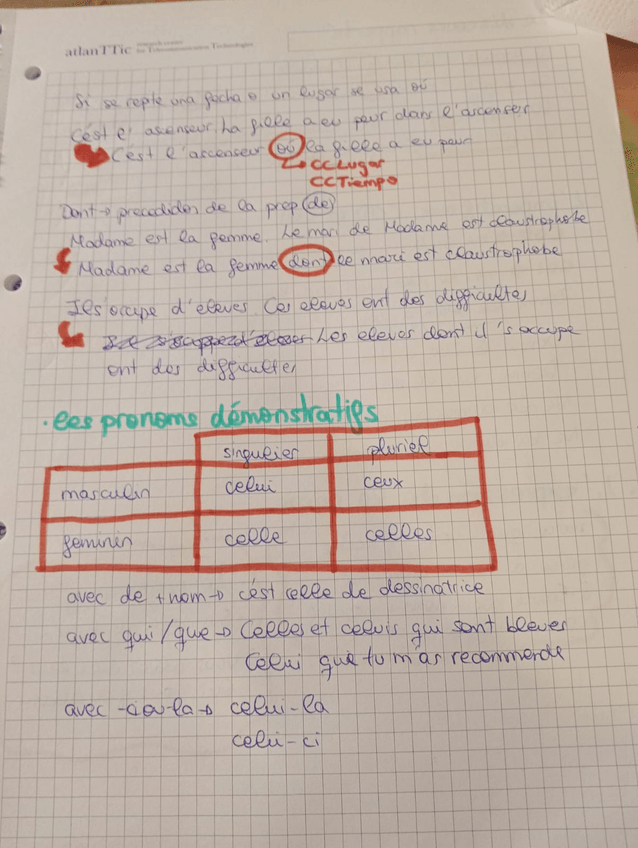 atlanTTic research center for Telecommunication Technologies
Si se repite una fecha o un lugar se usa où
C'est l'ascenseur. La fille a eu peur dans l'ascenser
C'est l'ascenseur où la fille a eu peur
CCLugar
CCTiempo
Dont → precedidos de la prep de
Madame est la femme. Le mari de Madame est claustrophobe
Madame est la femme dont le mari est claustrophobe
Il s'occupe d'eleves. Ces eleves ont des difficultes
Les eleves dont il 's occupe
ont des difficultes
· les pronoms démonstratifs
singulier pluriel
masculin celui ceux
feminin celle celles
avec de + nom → c'est celle de dessinatrice
avec qui/que → Celles et celuis qui sont bleues
Celui que tu m'as recommende
avec -ci ou -la → celui-la
celui-ci